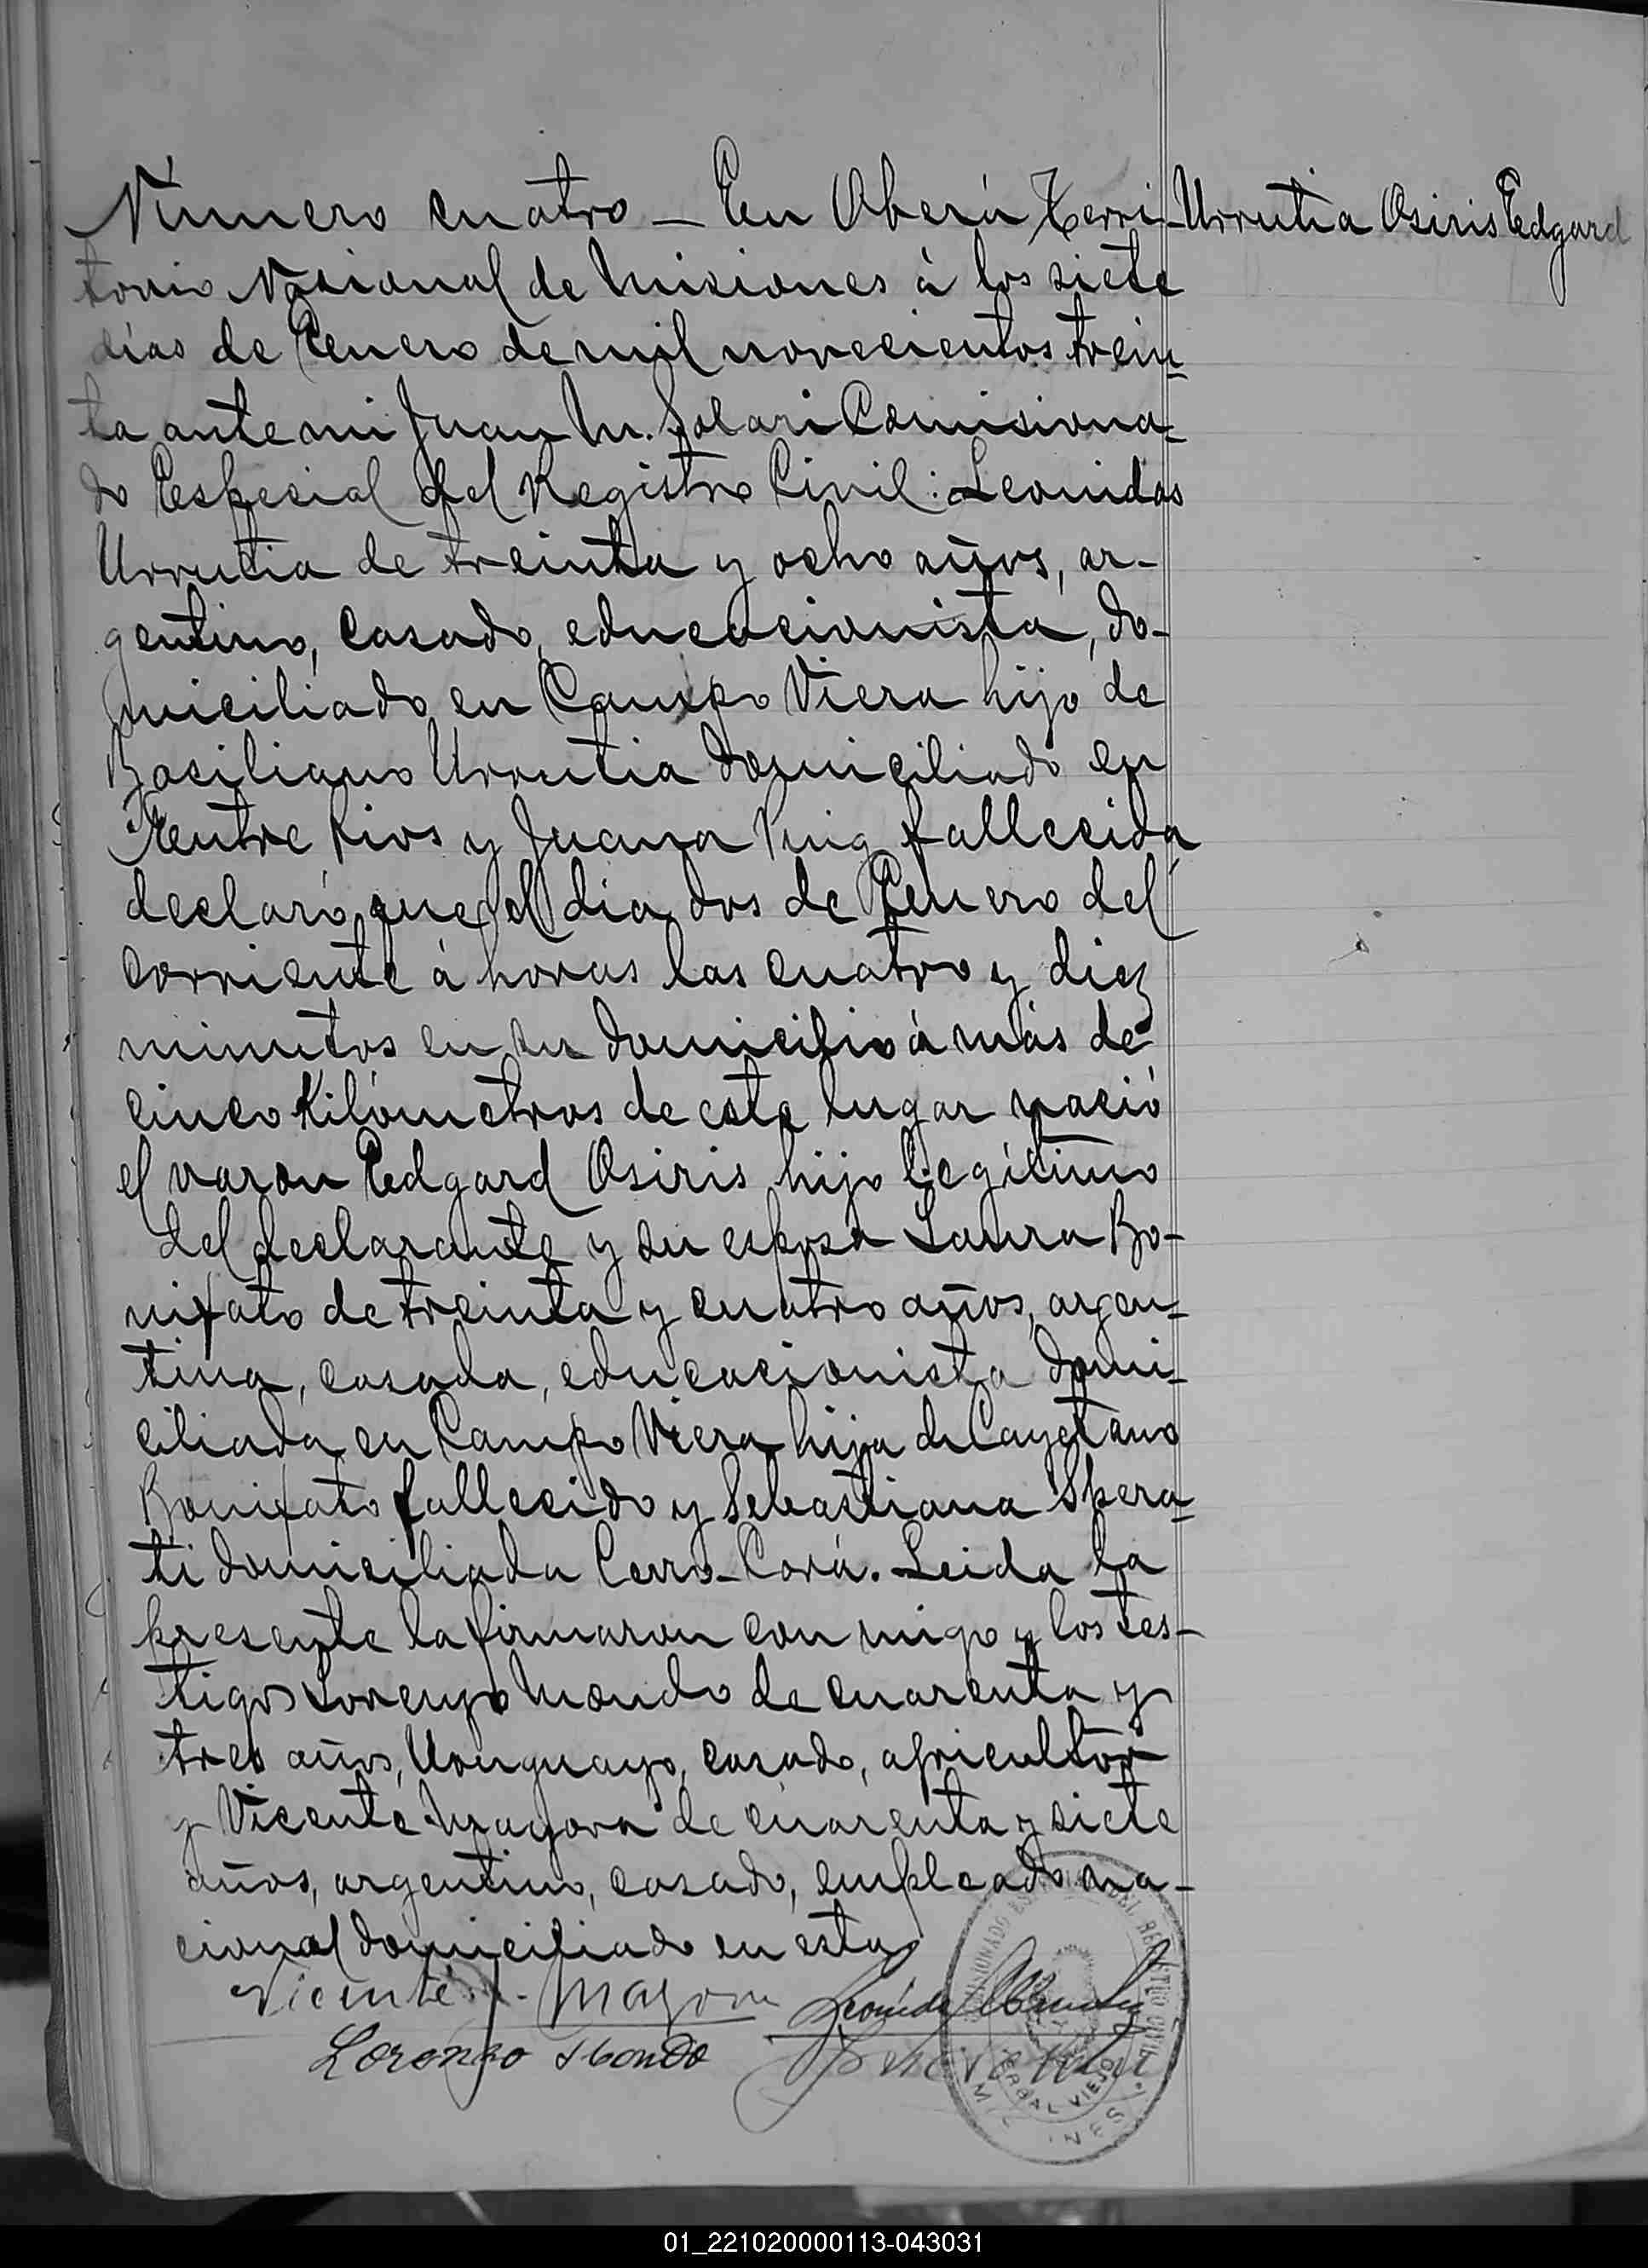 Número cuatro — En Oberá Terri-
Urrutia Osiris Edgard
torio Nacional de Misiones à los siete
días de Enero de mil novecientos trein-
ta ante mi Juan M. Solari Comisiona-
do Especial del Registro Civil: Leonidas
Urrutia de treinta y ocho años, ar-
gentino, casado, educacionista, do-
miciliado en Campo Viera hijo de
Basiliano Urrutia domiciliado en
Entre Rios y Juana Puig fallecida
declaró que el dia dos de Enero del
corriente à horas las cuatro y diez
minutos en su domicilio à más de
cinco Kilómetros de este lugar nació
el varon Edgard Osiris hijo legítimo
del declarante y su esposa Laura Bo-
nifato de treinta y cuatro años, argen-
tina, casada, educacionista domi-
ciliada en Campo Viera hija de Cayetano
Bonifato fallecido y Sebastiana Spera-
ti domiciliada Cerro-Corá. Leida la
presente la firmaron con migo y los tes-
tigos Lorenzo Mondo de cuarenta y
tres años, Uruguayo, casado, agricultor
y Vicente Mayora de cuarenta y siete
años, argentino, casado, empleado na-
cional domiciliado en esta
Vicente J. Mayora
Leonidas Urrutia
Lorenzo Mondo
REGISTRO CIVIL
YERBAL VIEJO
MISIONES
01_221020000113-043031